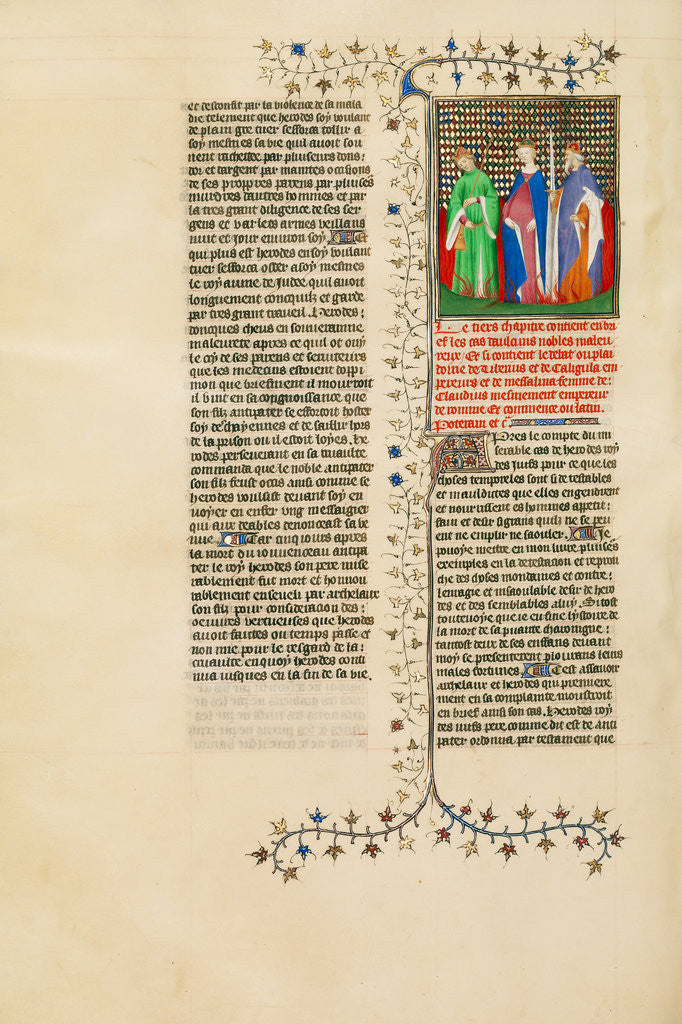 et desconfit par la violence de sa mala
die telement que herodes soy voulant
de plain gre tuer sefforca tollir a
soy mesmes sa vie quil avoit sou
uent rachettee par pluseurs dons:
dor et dargent par maintes occisions
de ses propres parens par pluses
murdres dautres hommes et par
la tres grant diligence de ses ser
gens et varlets armes veillans
nuit et jour enuiron soy Et
qui plus est herodes en soy voulant
tuer sefforca oster a soy mesmes
le royaume de Judee quil auoit
longuement conquis et garde
par tres grant traueil. Herodes:
doncques cheus en souueraine
maleurete apres ce quil ot ouy
le cry de ses parens et seruiteurs
que les medecins estoient doppi
nion que briefment il mourroit
il vint en sa congnoissance que
son filz antipater se efforcoit hoster
soy de chayennes et de saillir hors
de la prison ou il estoit loyes. He
rodes perseuerant en sa cruaulte
commanda que le noble antipater
son filz feust occis ainsi comme se
herodes voulsist deuant soy en
uoyer en enfer vng messaigier
qui aux deables denoncast sa ve
nue. Car cinq iours apres
la mort du iouuenceau antipa
ter le roy herodes son pere mise
rablement fut mort et honnou
rablement enseueli par archelaus
son filz pour consideracion des:
oeuures vertueuses que herodes
auoit faictes ou temps passe et
non mie pour le resgard de la:
cruaulte en quoy herodes conti
nua iusques en la fin de sa vie.
Le tiers chapitre contient en bri
ef les cas daulcuns nobles maleu
reux Et si contient le debat ou plai
doirie de Tiberius et de Caligula em
pereurs et de messalina femme de:
Claudius mesmement empereur
de romme Et commence ou latin.
Poteram et c
Apres le compte du mi
serable cas de herodes roy
des juifs pour ce que les
choses temporeles sont si detestables
et mauldictes que elles engendrent
et nourrissent es hommes appetit:
faim et desir si grans quilz ne se peu
ent ne emplir ne saouler. Je
pouoye mettre en mon liure pluses
exemples en la detestacion et reprou
che des choses mondaines et contre:
lenragie et insaoulable desir de hero
des et des semblables a luy. Si tost
toutesuoye que ie eu fine lystoire de
la mort de sa puante charoingne:
tantost deux de ses enffans deuant
moy se presenterent plourans leurs
males fortunes. Cest assauoir
archelaus et herodes qui premiere
ment en sa complainte moustroit
en brief ainsi son cas. Herodes roy
des juifs pere comme dit est de anti
pater ordonna par testament que